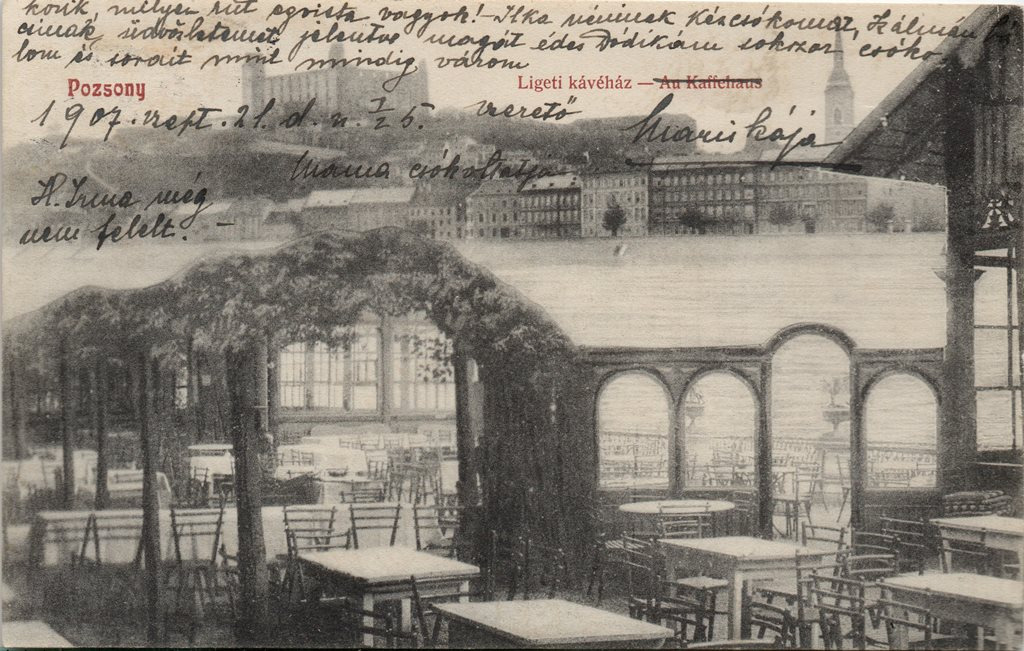 kozik, milyen rút egoista vagyok! - Ilka néninek kézcsókomat, Kálmán
cimák üdvözletemet jelentve magát édes Dódikám sokszor csóko-
lom és sorait mint mindig várom
Pozsony
Ligeti kávéház — Au Kaffehaus
1907. szept. 21. d. u. 1/2 5. szerető
Mariskája
Mama csókoltatja
H. Irma még
nem felelt. -